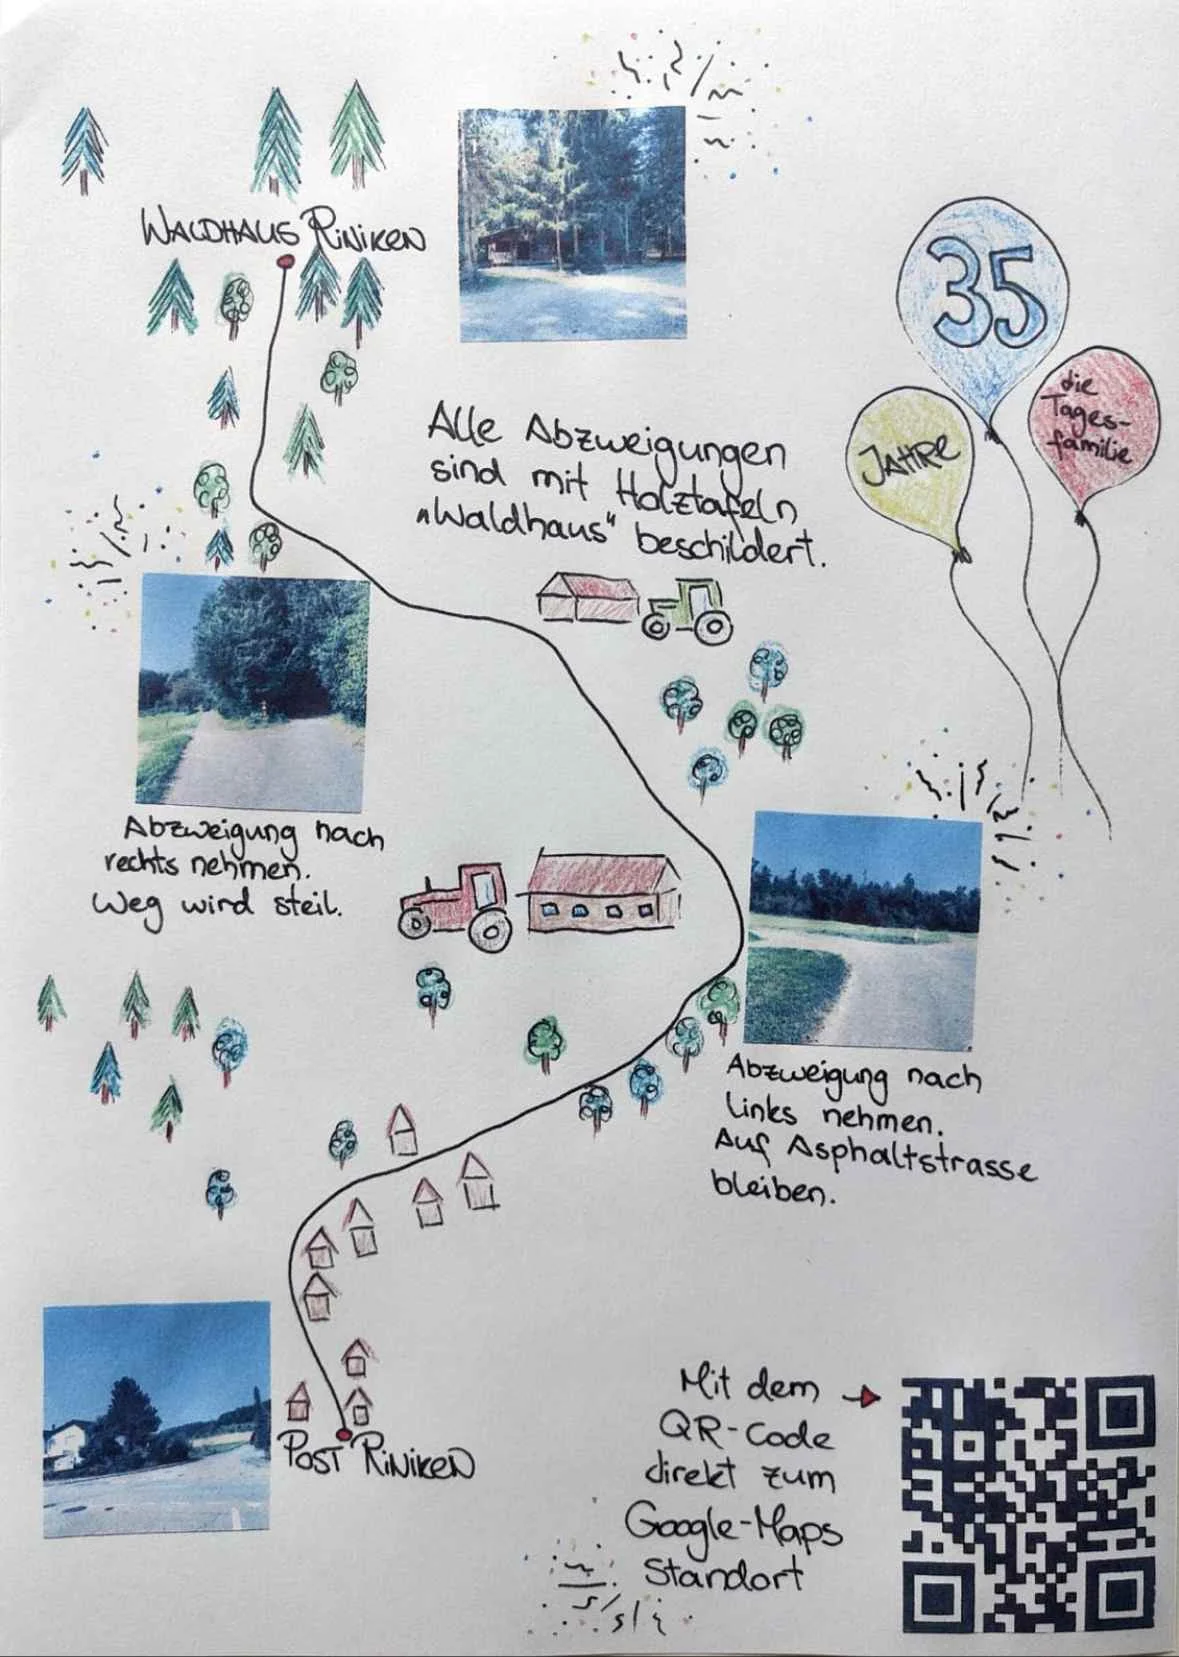 WALDHAUS RINIKEN
35
JAHRE
die
Tages-
familie
Alle Abzweigungen
sind mit Holztafeln
"Waldhaus" beschildert.
Abzweigung nach
rechts nehmen.
Weg wird steil.
Abzweigung nach
links nehmen.
Auf Asphaltstrasse
bleiben.
POST RINIKEN
Mit dem
QR-Code
direkt zum
Google-Maps
Standort